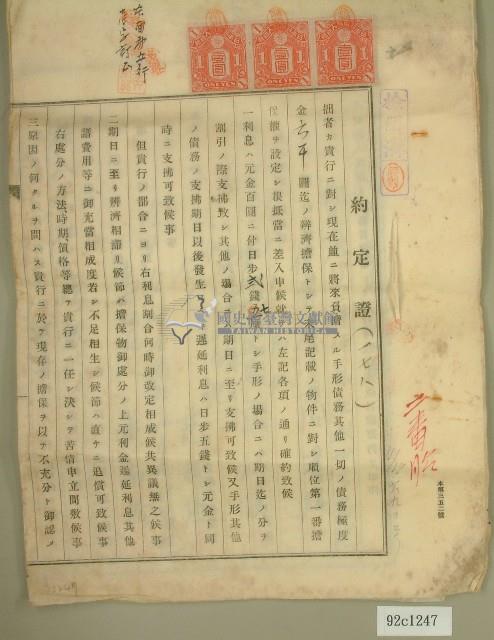 約定證(一七八)
拙者カ貴行ニ對シ現在並ニ將來負擔スル手形債務其他一切ノ債務極度
金六千圓迄ノ辨濟擔保トシテ末尾記載ノ物件ニ對シ順位第一番擔
保權ヲ設定シ根抵當ニ差入申候就テハ左記各項ノ通リ確約致候
一利息ハ元金百圓ニ付日步貳錢 トシ手形ノ場合ニハ期日迄ノ分ヲ
割引ノ際支拂致シ其他ノ場合 期日ニ至リ支拂可致候又手形其他
ノ債務ノ支拂期日以後發生 遲延利息ハ日步五錢トシ元金ト同
時ニ支拂可致候事
但貴行ノ都合ニヨリ右利息割合何時御改定相成候共異議無之候事
二期日ニ至リ辨濟相滯リ候節ハ擔保物御處分ノ上元利金遲延利息其他
諸費用等ニ御充當相成度若シ不足相生シ候節ハ直ケニ追償可致候事
右處分ノ方法、時期價格等總テ貴行ニ一任シ決シテ苦情申立間敷候事
三原因ノ何タルヲ問ハス貴行ニ於テ現存ノ擔保ヲ以テ不充分ト御認メ
本票三五二號
二番
ONE YEN
ONE YEN
ONE YEN
國史館臺灣文獻館
TAIWAN HISTORICA
92c1247